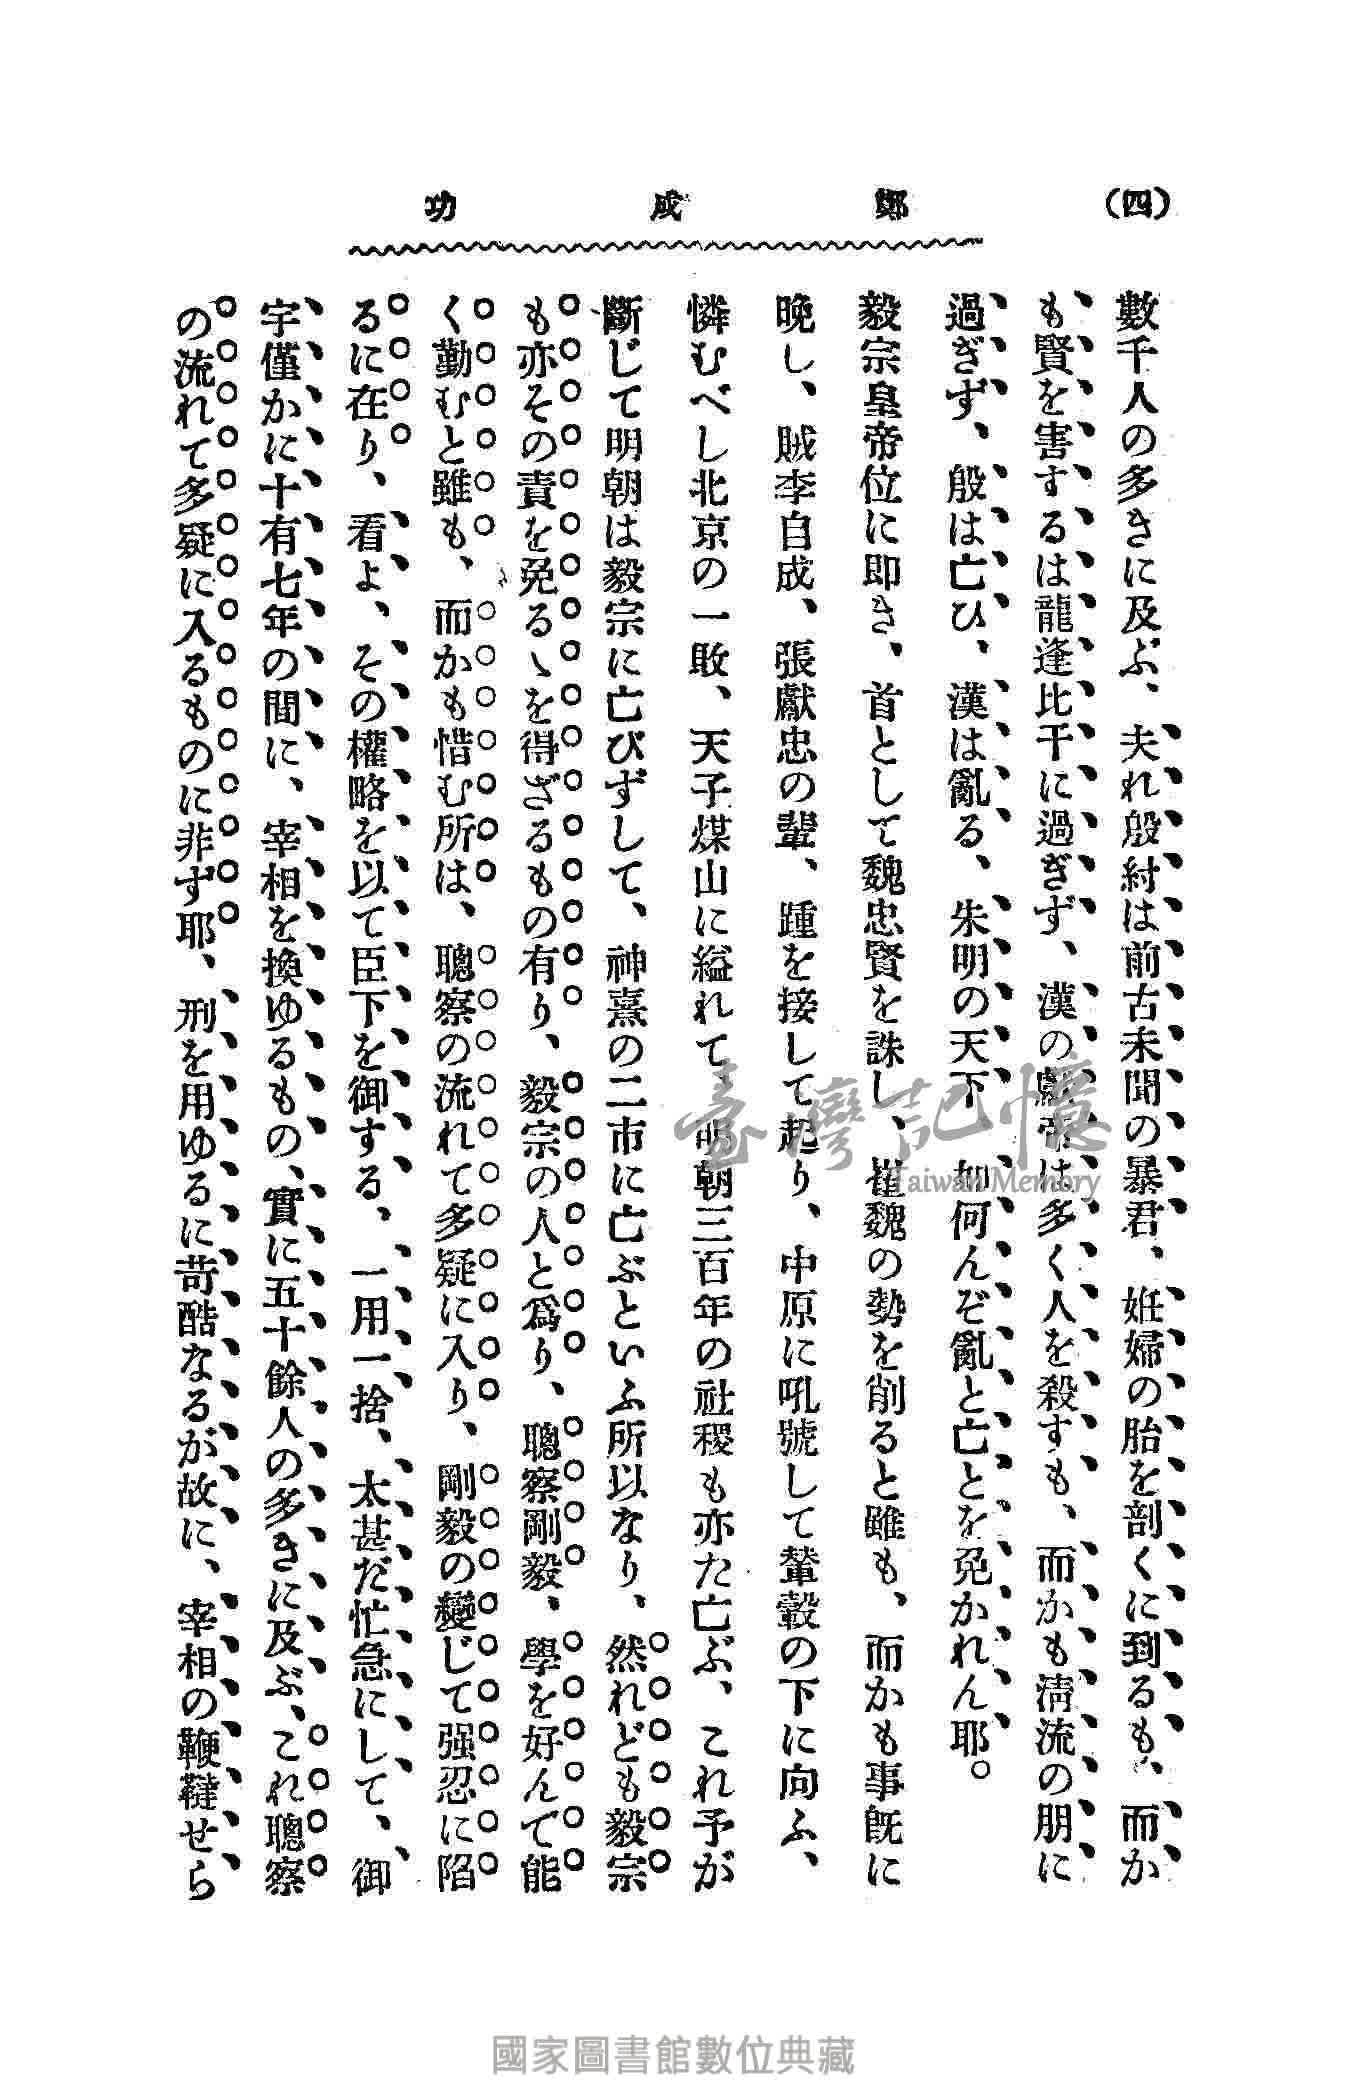 (四)
鄭成功
數千人の多きに及ぶ、夫れ殷紂は前古未聞の暴君、姙婦の胎を剖くに到るも、而か
も賢を害するは龍逢比干に過ぎず、漢の獻帝は多く人を殺すも、而かも淸流の朋に
過ぎず、殷は亡ひ、漢は亂る、朱明の天下 如何んぞ亂と亡とを免かれん耶。
毅宗皇帝位に即き、首として魏忠賢を誅し、崔魏の勢を削ると雖も、而かも事旣に
晚し、賊李自成、張獻忠の輩、踵を接して起り、中原に吼號して輦轂の下に向ふ、
憐むべし北京の一敗、天子煤山に縊れて 明朝三百年の社稷も亦た亡ぶ、これ予が
斷じて明朝は毅宗に亡びずして、神熹の二市に亡ぶといふ所以なり、然れども毅宗
も亦その責を免るゝを得ざるもの有り、毅宗の人と爲り、聰察剛毅、學を好んで能
く勤むと雖も、而かも惜む所は、聰察の流れて多疑に入り、剛毅の變じて强忍に陷
るに在り、看よ、その權略を以て臣下を御する、一用一捨、太甚だ忙急にして、御
宇僅かに十有七年の間に、宰相を換ゆるもの、實に五十餘人の多きに及ぶ、これ聰察
の流れて多疑に入るものに非ず耶、刑を用ゆるに苛酷なるが故に、宰相の鞭韃せら
臺灣記憶
Taiwan Memory
國家圖書館數位典藏